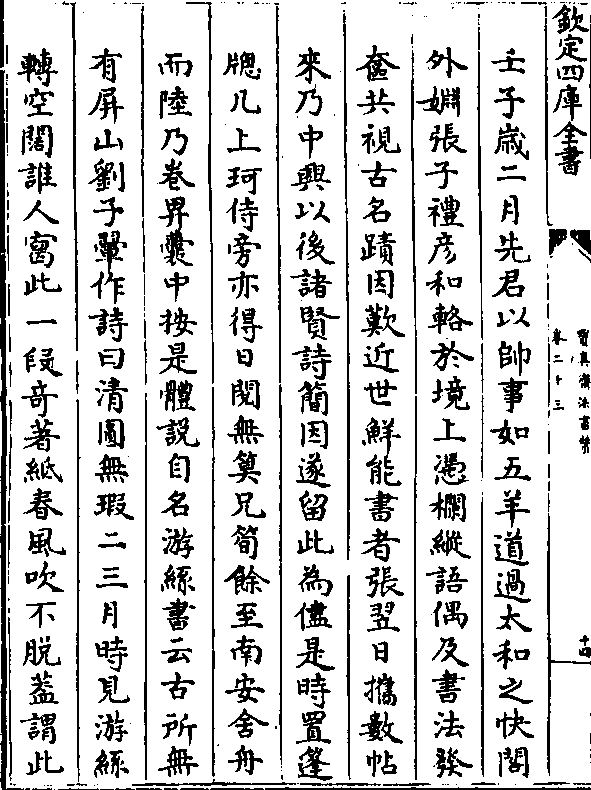 欽定四庫全書
寶真齋法書贊
卷二十三
十四
壬子歲二月先君以帥事如五羊道過太和之快閣
外姻張子禮彦和輅於境上憑欄縱語偶及書法發
奩共視古名蹟因歎近世鮮能書者張翌日攜數帖
來乃中興以後諸賢詩簡因遂留此為儘是時置篷
牎几上珂侍旁亦得日閱無筭兄筍餘至南安舍舟
而陸乃卷畀囊中按是體説自名游絲書云古所無
有屏山劉子翬作詩曰清圓無瑕二三月時見游絲
轉空闊誰人寫此一段奇著紙春風吹不脱葢謂此